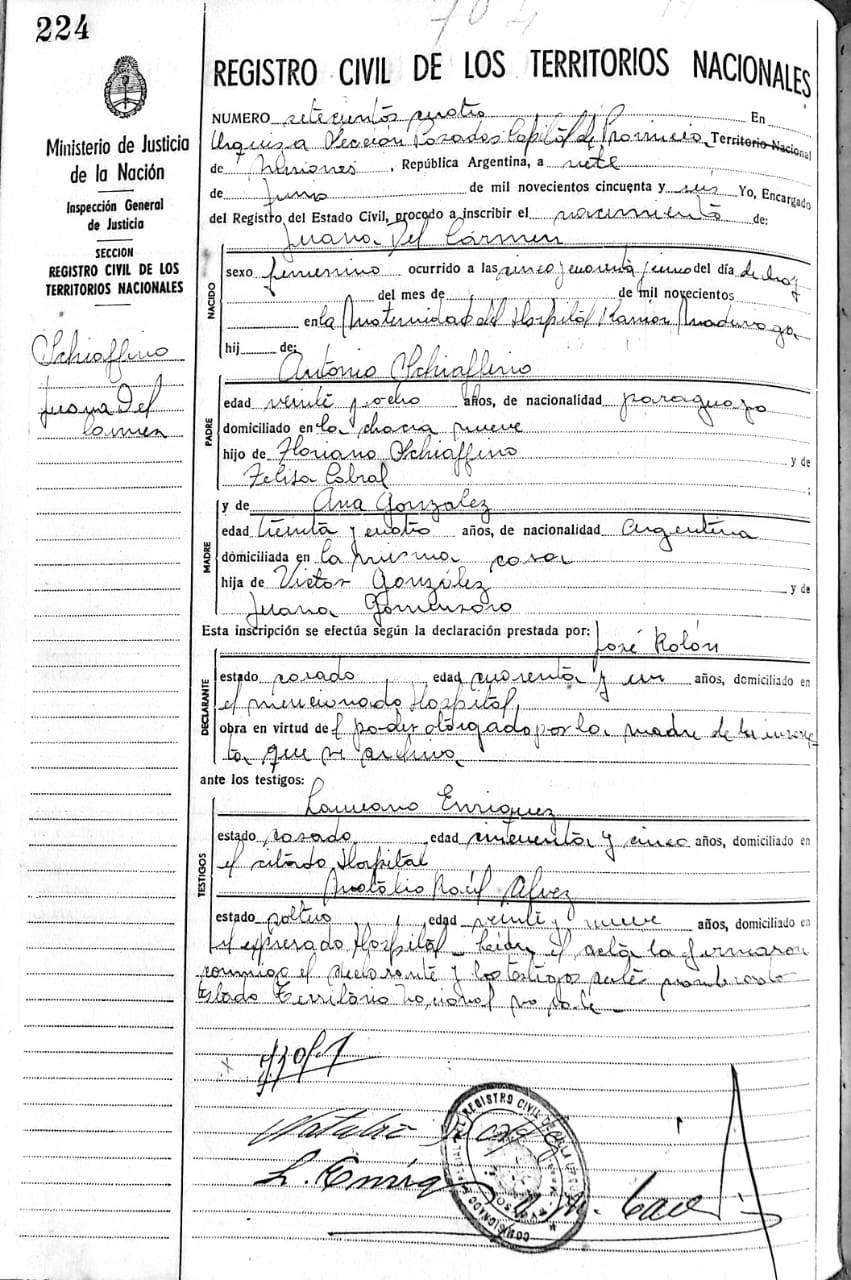 224
704
REGISTRO CIVIL DE LOS TERRITORIOS NACIONALES
Ministerio de Justicia
de la Nación
Inspección General
de Justicia
SECCION
REGISTRO CIVIL DE LOS
TERRITORIOS NACIONALES
Schiaffino
Juana Del
Carmen
NUMERO setecientos cuatro En
Urquiza Sección Posadas Capital de Provincia Territorio Nacional
de Misiones, República Argentina, a siete
de Junio de mil novecientos cincuenta y seis Yo, Encargado
del Registro del Estado Civil, procedo a inscribir el nacimiento de:
Juana Del Cármen
NACIDO
sexo femenino ocurrido a las cinco y cuarenta y cinco del día de hoy
del mes de de mil novecientos
en la Maternidad del Hospital Ramón Madariaga
hij de:
Antonio Schiaffino
PADRE
edad veinte y ocho años, de nacionalidad paraguayo
domiciliado en la chacra nueve
hijo de Floriano Schiaffino y de
Felisa Cabral ;
y de Ana Gonzalez
MADRE
edad treinta y cuatro años, de nacionalidad Argentina
domiciliada en la misma casa
hija de Victor González y de
Juana Gomensoro
Esta inscripción se efectúa según la declaración prestada por: José Rolón
DECLARANTE
estado casado edad cuarenta y un años, domiciliado en
el mencionado Hospital
obra en virtud del poder otorgado por la madre de la inscrip-
ta, que se archiva
ante los testigos:
Laureano Enriquez
TESTIGOS
estado casado, edad cincuenta y cinco años, domiciliado en
el citado Hospital
Natalio Raúl Alvez
estado soltero, edad veinte y nueve años, domiciliado en
el expresado Hospital - Leída el acta la firmaron
conmigo el declarante y los testigos
Territorio Nacional no vale -
L. Enriq
REGISTRO CIVIL DE